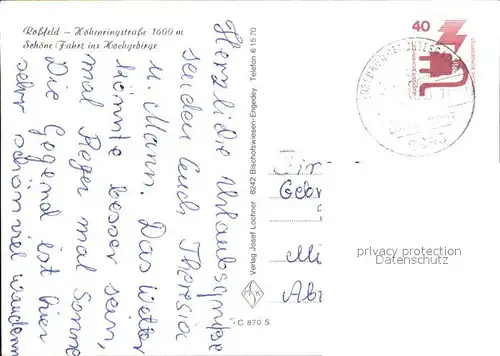 Roßfeld – Höhenringstraße 1600 m
Schöne Fahrt ins Hochgebirge
Herzliche Urlaubsgrüße
senden Euch Theresia
u. Mann. Das Wetter
könnte besser sein,
mal Regen mal Sonne
Die Gegend ist hier
sehr schön viel wandern
Verlag Josef Lochner 8242 Bischofswiesen-Engedey Telefon 6 15 70
C 870 S
40
Fir
Gebr
Mi
Ab
privacy protection
AKPOOL.DE